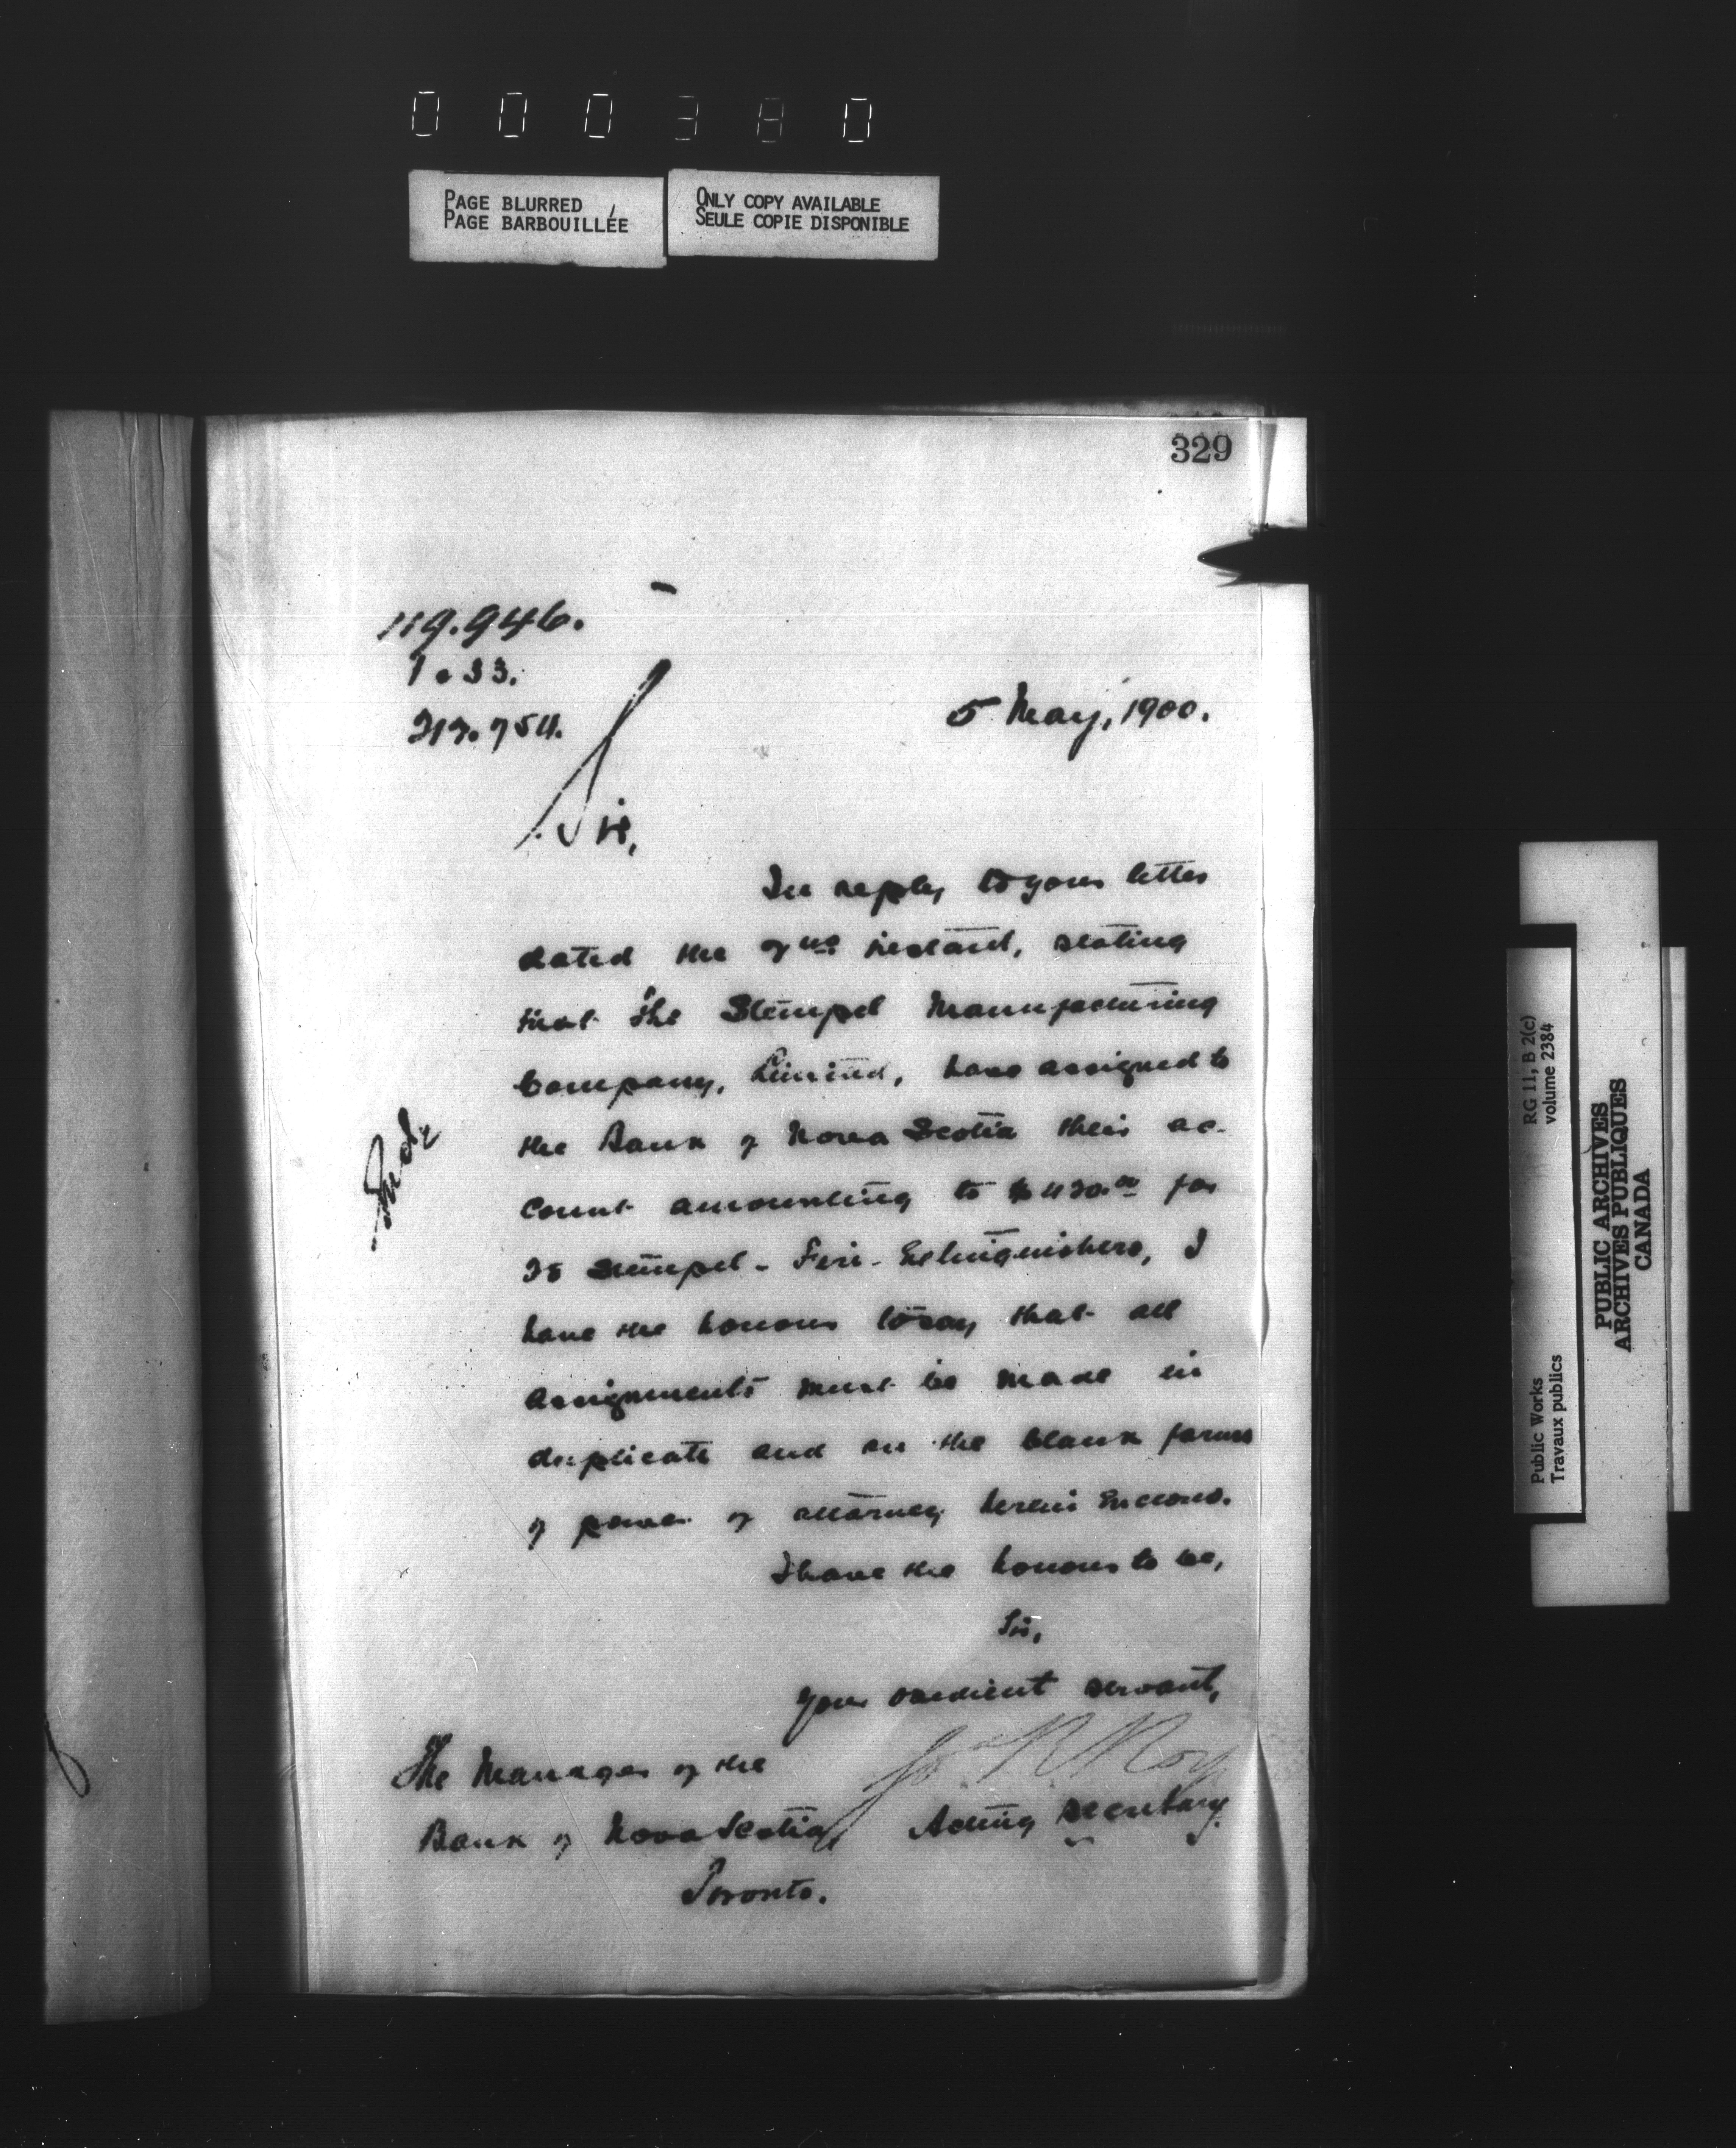 000380
PAGE BLURRED
PAGE BARBOUILLÉE
ONLY COPY AVAILABLE
SEULE COPIE DISPONIBLE
329
119.946.
5 May, 1900.
Sir,
In reply to your letter
dated the instant, stating
that the Stempel Manufacturing
Company, Limited, have assigned to
the Bank of Nova Scotia their ac-
count amounting to for
Stempel - Fire - Extinguishers, I
have the honour to say that all
assignments must be made in
duplicate and on the blank forms
of power of attorney herein enclosed.
I have the honour to be,
Sir,
Your obedient servant,
Roy
Acting Secretary.
The Manager of the
Bank of Nova Scotia,
Toronto.
RG 11, B 2(c)
volume 2384
Public Works
Travaux publics
PUBLIC ARCHIVES
ARCHIVES PUBLIQUES
CANADA